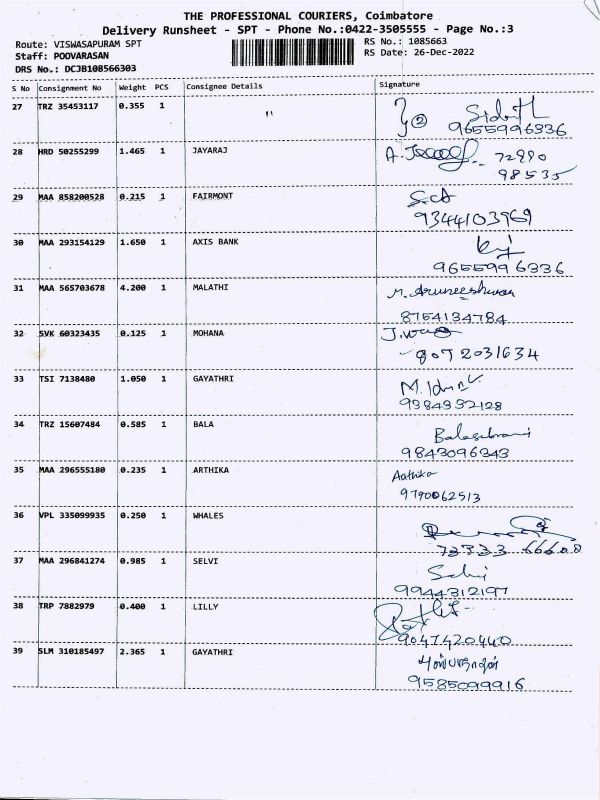 THE PROFESSIONAL COURIERS, Coimbatore
Delivery Runsheet - SPT - Phone No.:0422-3505555 - Page No.:3
Route: VISWASAPURAM SPT
RS No.: 1085663
Staff: POOVARASAN
RS Date: 26-Dec-2022
DRS No.: DCJB108566303
S No Consignment No Weight PCS Consignee Details Signature
27 TRZ 35453117 0.355 1 " 2
9655996336
28 HRD 50255299 1.465 1 JAYARAJ 72990
98535
29 MAA 858200528 0.215 1 FAIRMONT
9344103969
30 MAA 293154129 1.650 1 AXIS BANK
9655996336
31 MAA 565703678 4.200 1 MALATHI M. Aruneeshwar
8754134784
32 SVK 60323435 0.125 1 MOHANA
8072031634
33 TSI 7138480 1.050 1 GAYATHRI
9384932128
34 TRZ 15607484 0.585 1 BALA
9843096343
35 MAA 296555180 0.235 1 ARTHIKA Aathika
9790062513
36 VPL 335099935 0.250 1 WHALES
73333 66600
37 MAA 296841274 0.985 1 SELVI Selvi
9944312197
38 TRP 7882979 0.400 1 LILLY
9047420440
39 SLM 310185497 2.365 1 GAYATHRI
9585099916